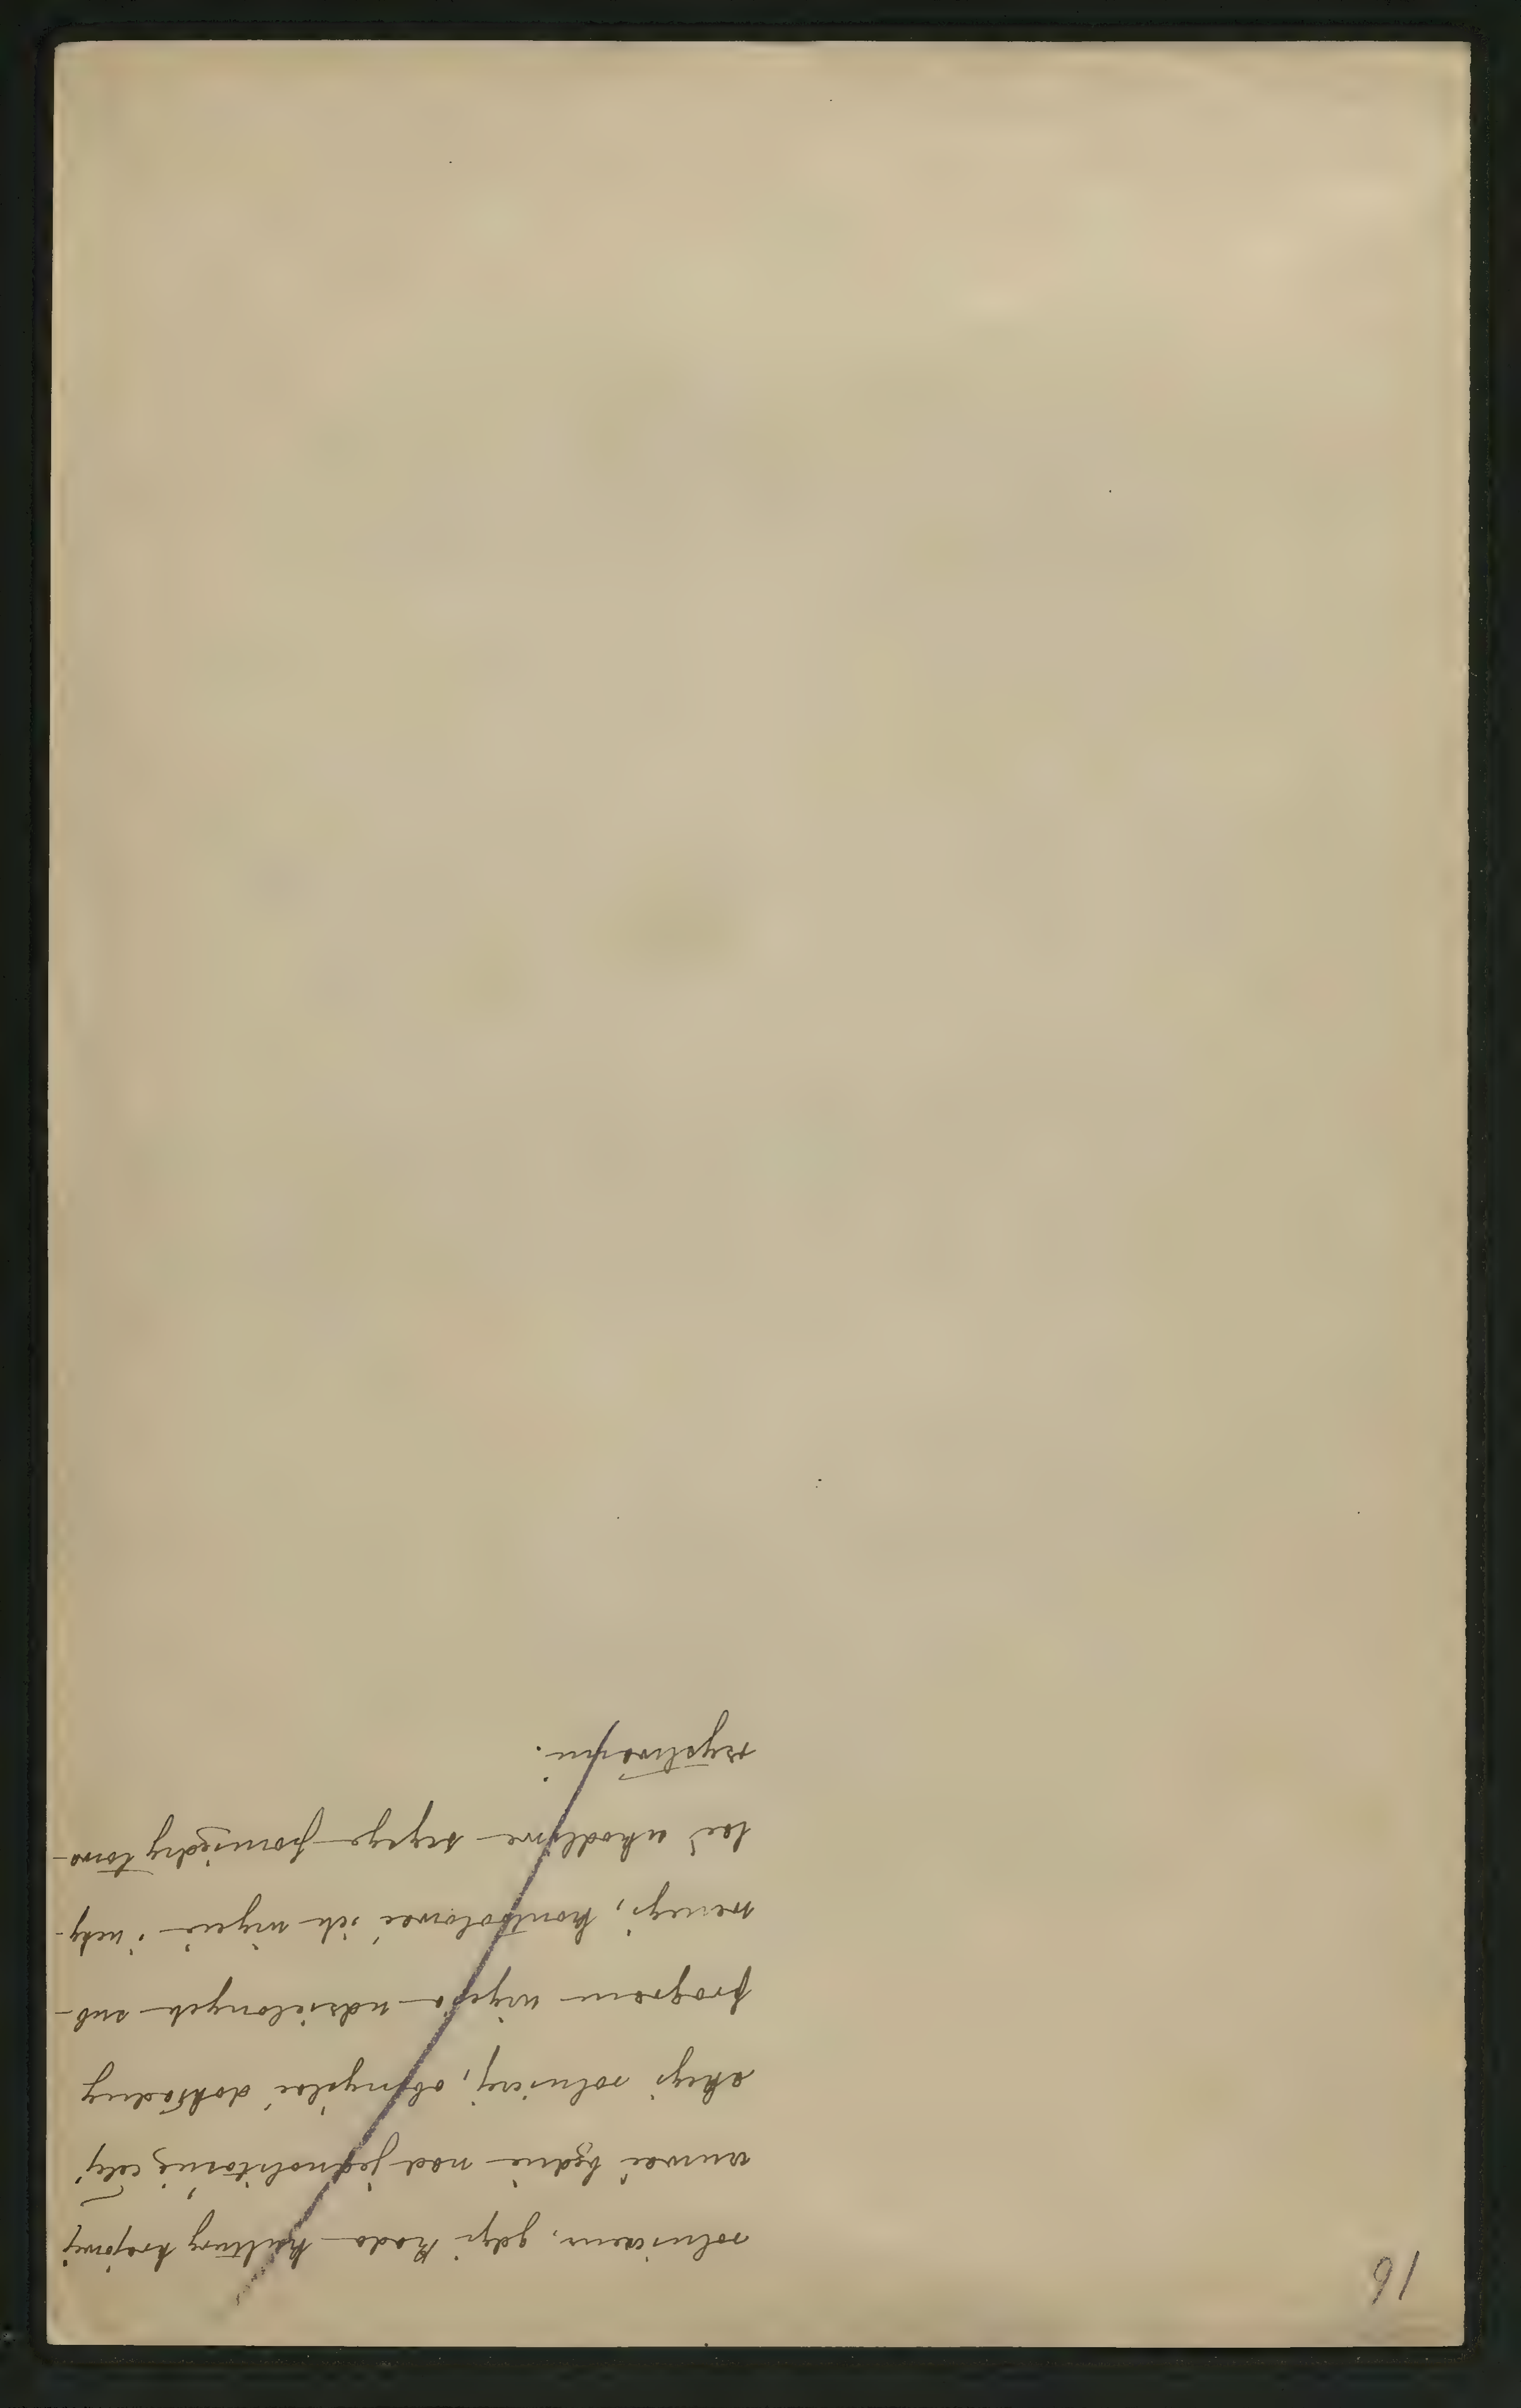 16
rolniczem, gdyż Rada kultury krajowej
czuwać będzie nad jednolitością całej
akcyi rolniczej, obmyślać dokładny
program użycia udzielonych sub-
wencyi, kontrolować ich użycie i usu-
tać szkodliwe scysye pomiędzy towa-
rzystwami.